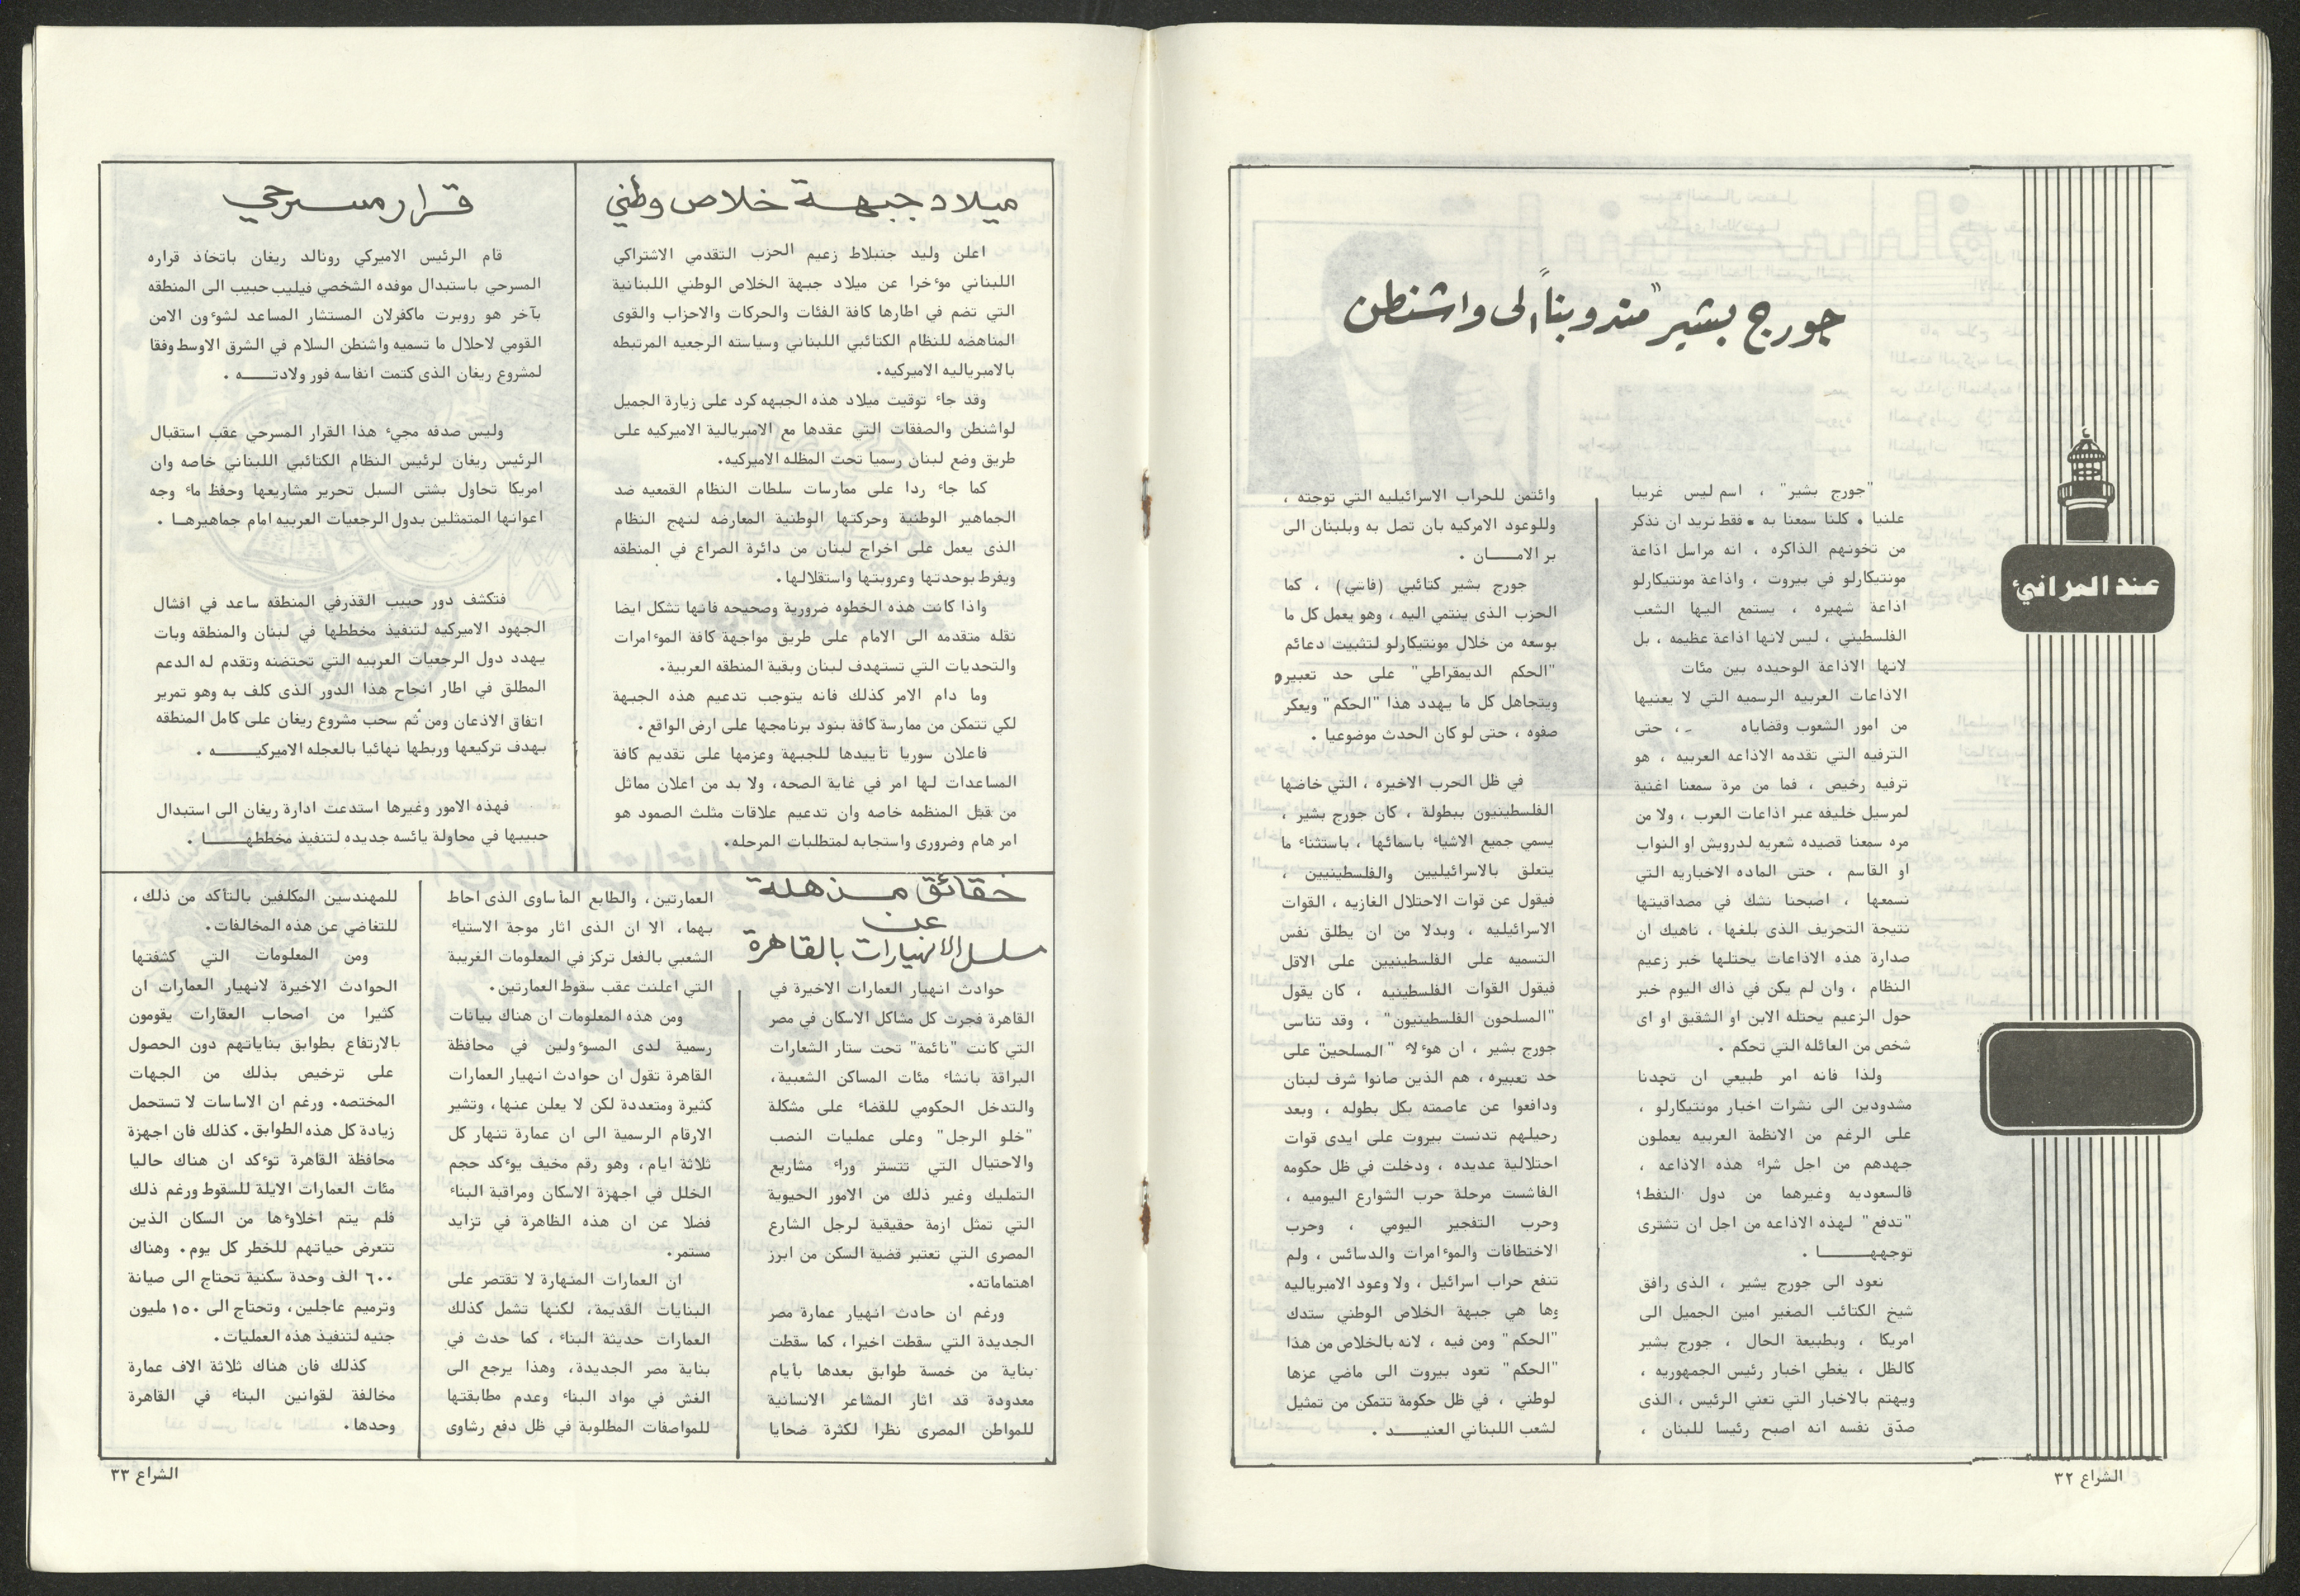 جورج بشير "مندوبناً" الى واشنطن
عند المرافئ
"جورج بشير" ، اسم ليس غريبا
علنيا . كلنا سمعنا به . فقط نريد ان نذكر
من تخونهم الذاكره ، انه مراسل اذاعة
مونتيكارلو في بيروت ، واذاعة مونتيكارلو
اذاعة شهيره ، يستمع اليها الشعب
الفلسطيني ، ليس لانها اذاعة عظيمه ، بل
لانها الاذاعة الوحيده بين مئات
الاذاعات العربيه الرسميه التي لا يعنيها
من امور الشعوب وقضاياه ، حتى
الترفيه التي تقدمه الاذاعه العربيه ، هو
ترفيه رخيص ، فما من مرة سمعنا اغنية
لمرسيل خليفه عبر اذاعات العرب ، ولا من
مره سمعنا قصيده شعريه لدرويش او النواب
او القاسم ، حتى الماده الاخباريه التي
نسمعها ، اصبحنا نشك في مصداقيتها
نتيجة التحريف الذى بلغها ، ناهيك ان
صدارة هذه الاذاعات يحتلها خبر زعيم
النظام ، وان لم يكن في ذاك اليوم خبر
حول الزعيم يحتله الابن او الشقيق او اى
شخص من العائله التي تحكم .
ولذا فانه امر طبيعي ان تجدنا
مشدودين الى نشرات اخبار مونتيكارلو ،
على الرغم من الانظمة العربيه يعملون
جهدهم من اجل شراء هذه الاذاعه ،
فالسعوديه وغيرهما من دول النفط؛
"تدفع" لهذه الاذاعه من اجل ان تشترى
توجهها .
نعود الى جورج بشير ، الذى رافق
شيخ الكتائب الصغير امين الجميل الى
امريكا ، وبطبيعة الحال ، جورج بشير
كالظل ، يغطي اخبار رئيس الجمهوريه ،
ويهتم بالاخبار التي تعني الرئيس ، الذى
صدّق نفسه انه اصبح رئيسا للبنان ،
وائتمن للحراب الاسرائيليه التي توجته ،
وللوعود الامركيه بان تصل به وبلبنان الى
بر الامــــان .
جورج بشير كتائبي (فاشي) ، كما
الحزب الذى ينتمي اليه ، وهو يعمل كل ما
بوسعه من خلال مونتيكارلو لتثبيت دعائم
"الحكم الديمقراطي" على حد تعبيره
ويتجاهل كل ما يهدد هذا "الحكم" ويعكر
صفوه ، حتى لو كان الحدث موضوعيا .
في ظل الحرب الاخيره ، التي خاضها
الفلسطينيون ببطولة ، كان جورج بشير ،
يسمي جميع الاشياء باسمائها ، باستثناء ما
يتعلق بالاسرائيليين والفلسطينيين ،
فيقول عن قوات الاحتلال الغازيه ، القوات
الاسرائيليه ، وبدلا من ان يطلق نفس
التسميه على الفلسطينيين على الاقل
فيقول القوات الفلسطينيه ، كان يقول
"المسلحون الفلسطينيون" ، وقد تناسى
جورج بشير ، ان هوءلاء "المسلحين" على
حد تعبيره ، هم الذين صانوا شرف لبنان
ودافعوا عن عاصمته بكل بطوله ، وبعد
رحيلهم تدنست بيروت على ايدى قوات
احتلالية عديده ، ودخلت في ظل حكومه
الفاشست مرحلة حرب الشوارع اليوميه ،
وحرب التفجير اليومي ، وحرب
الاختطافات والموءامرات والدسائس ، ولم
تنفع حراب اسرائيل ، ولا وعود الامبرياليه
وها هي جبهة الخلاص الوطني ستدك
"الحكم" ومن فيه ، لانه بالخلاص من هذا
"الحكم" تعود بيروت الى ماضي عزها
لوطني ، في ظل حكومة تتمكن من تمثيل
لشعب اللبناني العنيــــد .
الشراع ٣٢
ميلاد جبهة خلاص وطني
اعلن وليد جنبلاط زعيم الحزب التقدمي الاشتراكي
اللبناني موءخرا عن ميلاد جبهة الخلاص الوطني اللبنانية
التي تضم في اطارها كافة الفئات والحركات والاحزاب والقوى
المناهضه للنظام الكتائبي اللبناني وسياسته الرجعيه المرتبطه
بالامبرياليه الاميركيه.
وقد جاء توقيت ميلاد هذه الجبهه كرد على زيارة الجميل
لواشنطن والصفقات التي عقدها مع الامبريالية الاميركيه على
طريق وضع لبنان رسميا تحت المظله الاميركيه.
كما جاء ردا على ممارسات سلطات النظام القمعيه ضد
الجماهير الوطنية وحركتها الوطنية المعارضه لنهج النظام
الذى يعمل على اخراج لبنان من دائرة الصراع في المنطقه
ويفرط بوحدتها وعروبتها واستقلالها.
واذا كانت هذه الخطوه ضرورية وصحيحه فانها تشكل ايضا
نقله متقدمه الى الامام على طريق مواجهة كافة الموءامرات
والتحديات التي تستهدف لبنان وبقية المنطقه العربية.
وما دام الامر كذلك فانه يتوجب تدعيم هذه الجبهة
لكي تتمكن من ممارسة كافة بنود برنامجها على ارض الواقع.
فاعلان سوريا تأييدها للجبهة وعزمها على تقديم كافة
المساعدات لها امر في غاية الصحه، ولا بد من اعلان مماثل
من قبل المنظمه خاصه وان تدعيم علاقات مثلث الصمود هو
امر هام وضرورى واستجابه لمتطلبات المرحله.
قرار مسرحي
قام الرئيس الاميركي رونالد ريغان باتخاذ قراره
المسرحي باستبدال موفده الشخصي فيليب حبيب الى المنطقه
بآخر هو روبرت ماكفرلان المستشار المساعد لشوءون الامن
القومي لاحلال ما تسميه واشنطن السلام في الشرق الاوسط وفقا
لمشروع ريغان الذى كتمت انفاسه فور ولادتــــه .
وليس صدفه مجيء هذا القرار المسرحي عقب استقبال
الرئيس ريغان لرئيس النظام الكتائبي اللبناني خاصه وان
امريكا تحاول بشتى السبل تحرير مشاريعها وحفظ ماء وجه
اعوانها المتمثلين بدول الرجعيات العربيه امام جماهيرهــا .
فتكشف دور حبيب القذرفي المنطقه ساعد في افشال
الجهود الاميركيه لتنفيذ مخططها في لبنان والمنطقه وبات
يهدد دول الرجعيات العربيه التي تحتضنه وتقدم له الدعم
المطلق في اطار انجاح هذا الدور الذى كلف به وهو تمرير
اتفاق الاذعان ومن ثم سحب مشروع ريغان على كامل المنطقه
بهدف تركيعها وربطها نهائيا بالعجله الاميركيــــه .
فهذه الامور وغيرها استدعت ادارة ريغان الى استبدال
حبيبها في محاولة يائسه جديده لتنفيذ مخططهــــا .
حقائق مذهلة
عن
مسلسل الانهيارات بالقاهرة
حوادث انهيار العمارات الاخيرة في
القاهرة فجرت كل مشاكل الاسكان في مصر
التي كانت "نائمة" تحت ستار الشعارات
البراقة بانشاء مئات المساكن الشعبية،
والتدخل الحكومي للقضاء على مشكلة
"خلو الرجل" وعلى عمليات النصب
والاحتيال التي تتستر وراء مشاريع
التمليك وغير ذلك من الامور الحيوية
التي تمثل ازمة حقيقية لرجل الشارع
المصرى التي تعتبر قضية السكن من ابرز
اهتماماته.
ورغم ان حادث انهيار عمارة مصر
الجديدة التي سقطت اخيرا، كما سقطت
بناية من خمسة طوابق بعدها بأيام
معدودة قد اثار المشاعر الانسانية
للمواطن المصرى نظرا لكثرة ضحايا
العمارتين، والطابع المأساوى الذى احاط
بهما، الا ان الذى اثار موجة الاستياء
الشعبي بالفعل تركز في المعلومات الغريبة
التي اعلنت عقب سقوط العمارتين.
ومن هذه المعلومات ان هناك بيانات
رسمية لدى المسوءولين في محافظة
القاهرة تقول ان حوادث انهيار العمارات
كثيرة ومتعددة لكن لا يعلن عنها، وتشير
الارقام الرسمية الى ان عمارة تنهار كل
ثلاثة ايام، وهو رقم مخيف يوءكد حجم
الخلل في اجهزة الاسكان ومراقبة البناء
فضلا عن ان هذه الظاهرة في تزايد
مستمر.
ان العمارات المنهارة لا تقتصر على
البنايات القديمة، لكنها تشمل كذلك
العمارات حديثة البناء، كما حدث في
بناية مصر الجديدة، وهذا يرجع الى
الغش في مواد البناء وعدم مطابقتها
للمواصفات المطلوبة في ظل دفع رشاوى
للمهندسين المكلفين بالتأكد من ذلك،
للتغاضي عن هذه المخالفات.
ومن المعلومات التي كشفتها
الحوادث الاخيرة لانهيار العمارات ان
كثيرا من اصحاب العقارات يقومون
بالارتفاع بطوابق بناياتهم دون الحصول
على ترخيص بذلك من الجهات
المختصه. ورغم ان الاساسات لا تستحمل
زيادة كل هذه الطوابق. كذلك فان اجهزة
محافظة القاهرة توءكد ان هناك حاليا
مئات العمارات الايلة للسقوط ورغم ذلك
فلم يتم اخلاوءها من السكان الذين
تتعرض حياتهم للخطر كل يوم. وهناك
٦٠٠ الف وحدة سكنية تحتاج الى صيانة
وترميم عاجلين، وتحتاج الى ١٥٠ مليون
جنيه لتنفيذ هذه العمليات.
كذلك فان هناك ثلاثة الاف عمارة
مخالفة لقوانين البناء في القاهرة
وحدها.
الشراع ٣٣